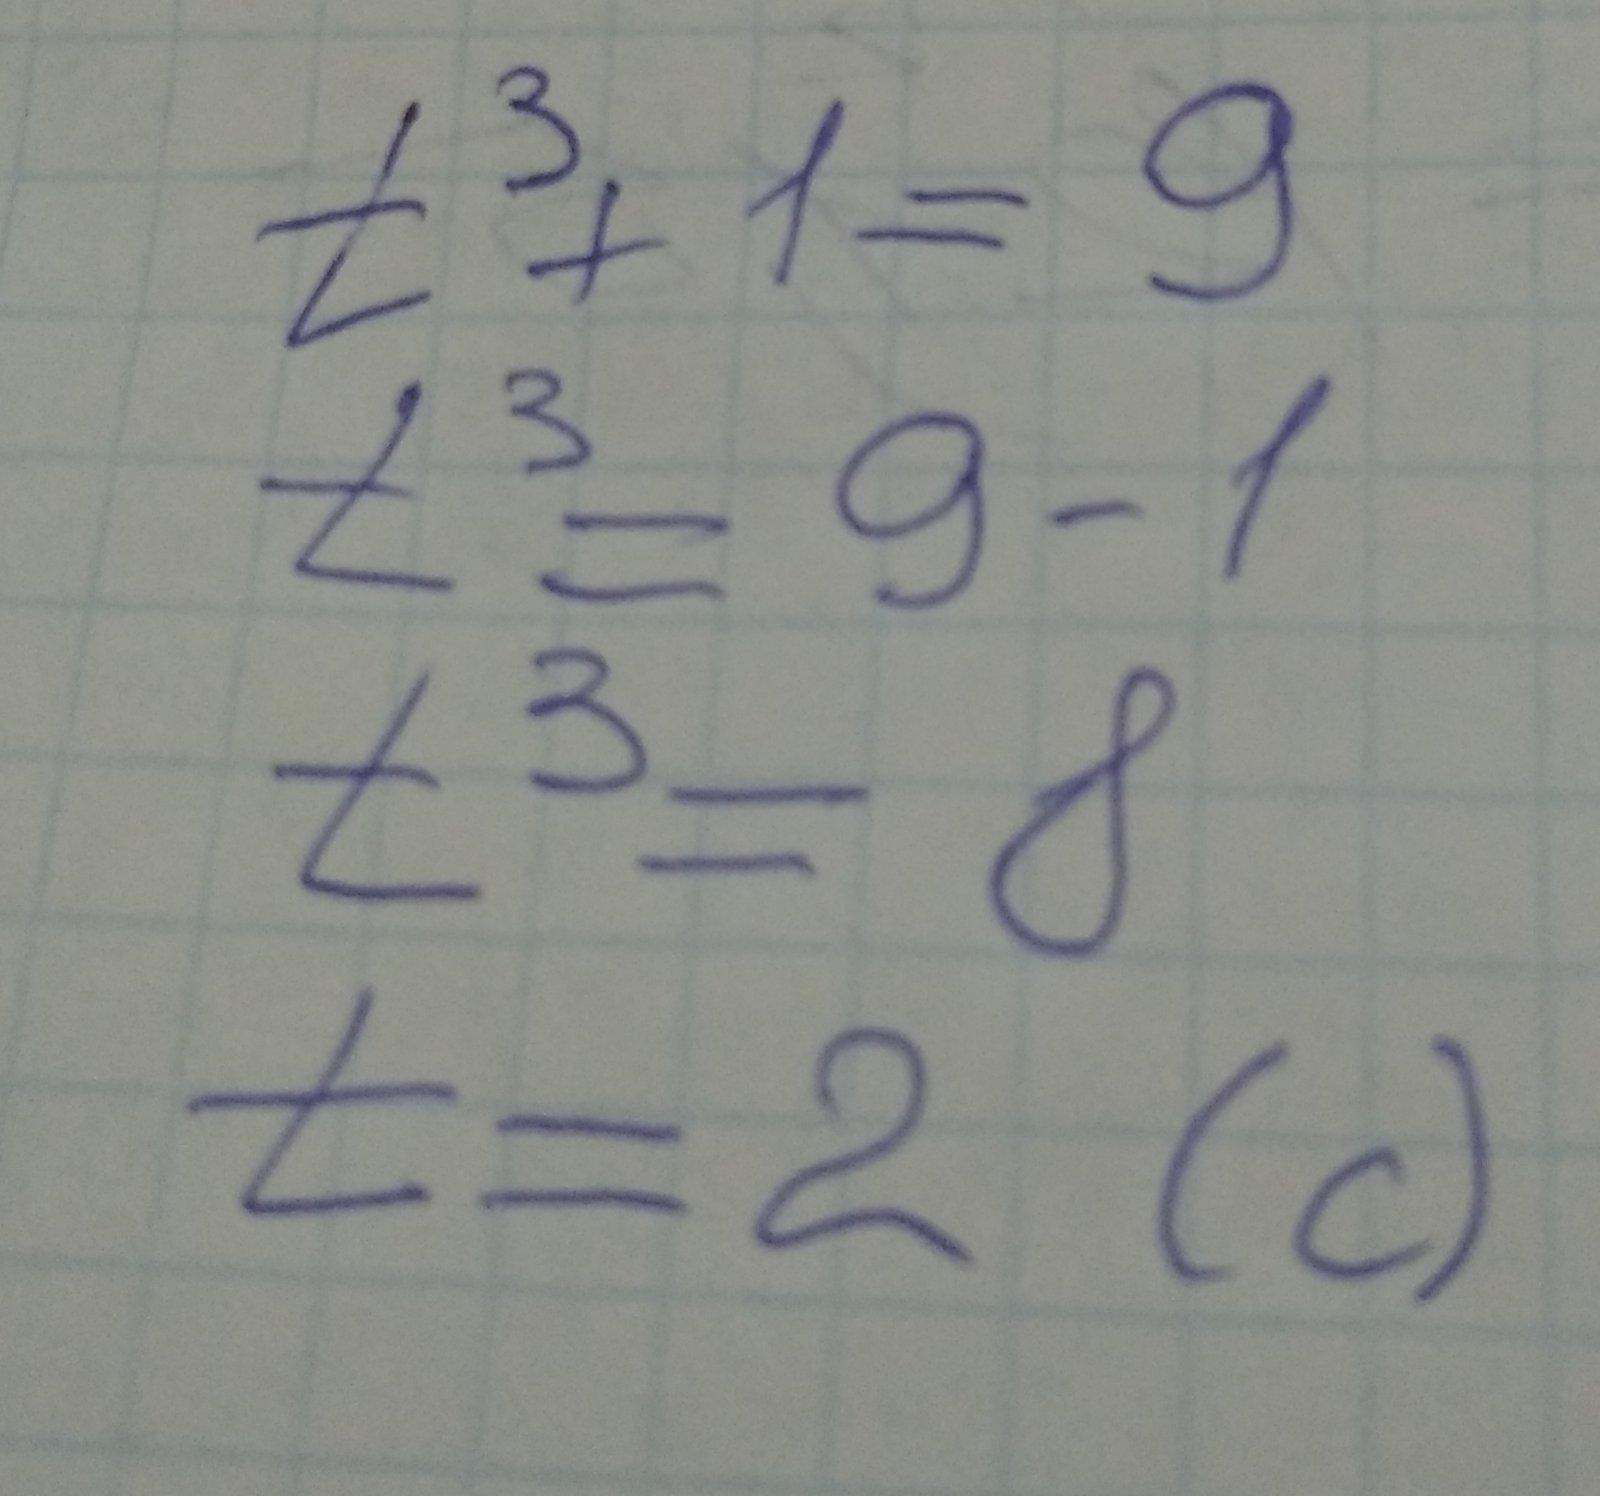 t³+1=9
t³=9-1
t³=8
t=2 (c)